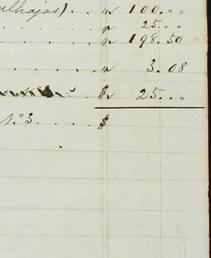 ulhajas) . . . " 100 . . "
" 25 . . "
. . . . " 198.50
. . . " 3.08
$ 25 . . "
No 3 . . . . $